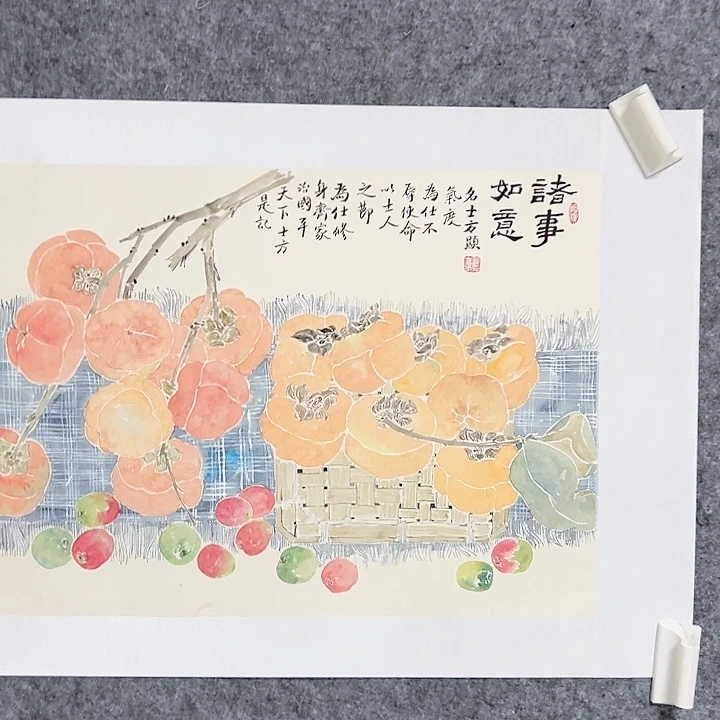 諸事
如意
名士方顯
氣度
為仕不
辱使命
以士人
之節
為仕修
身齊家
治國平
天下十方
是記